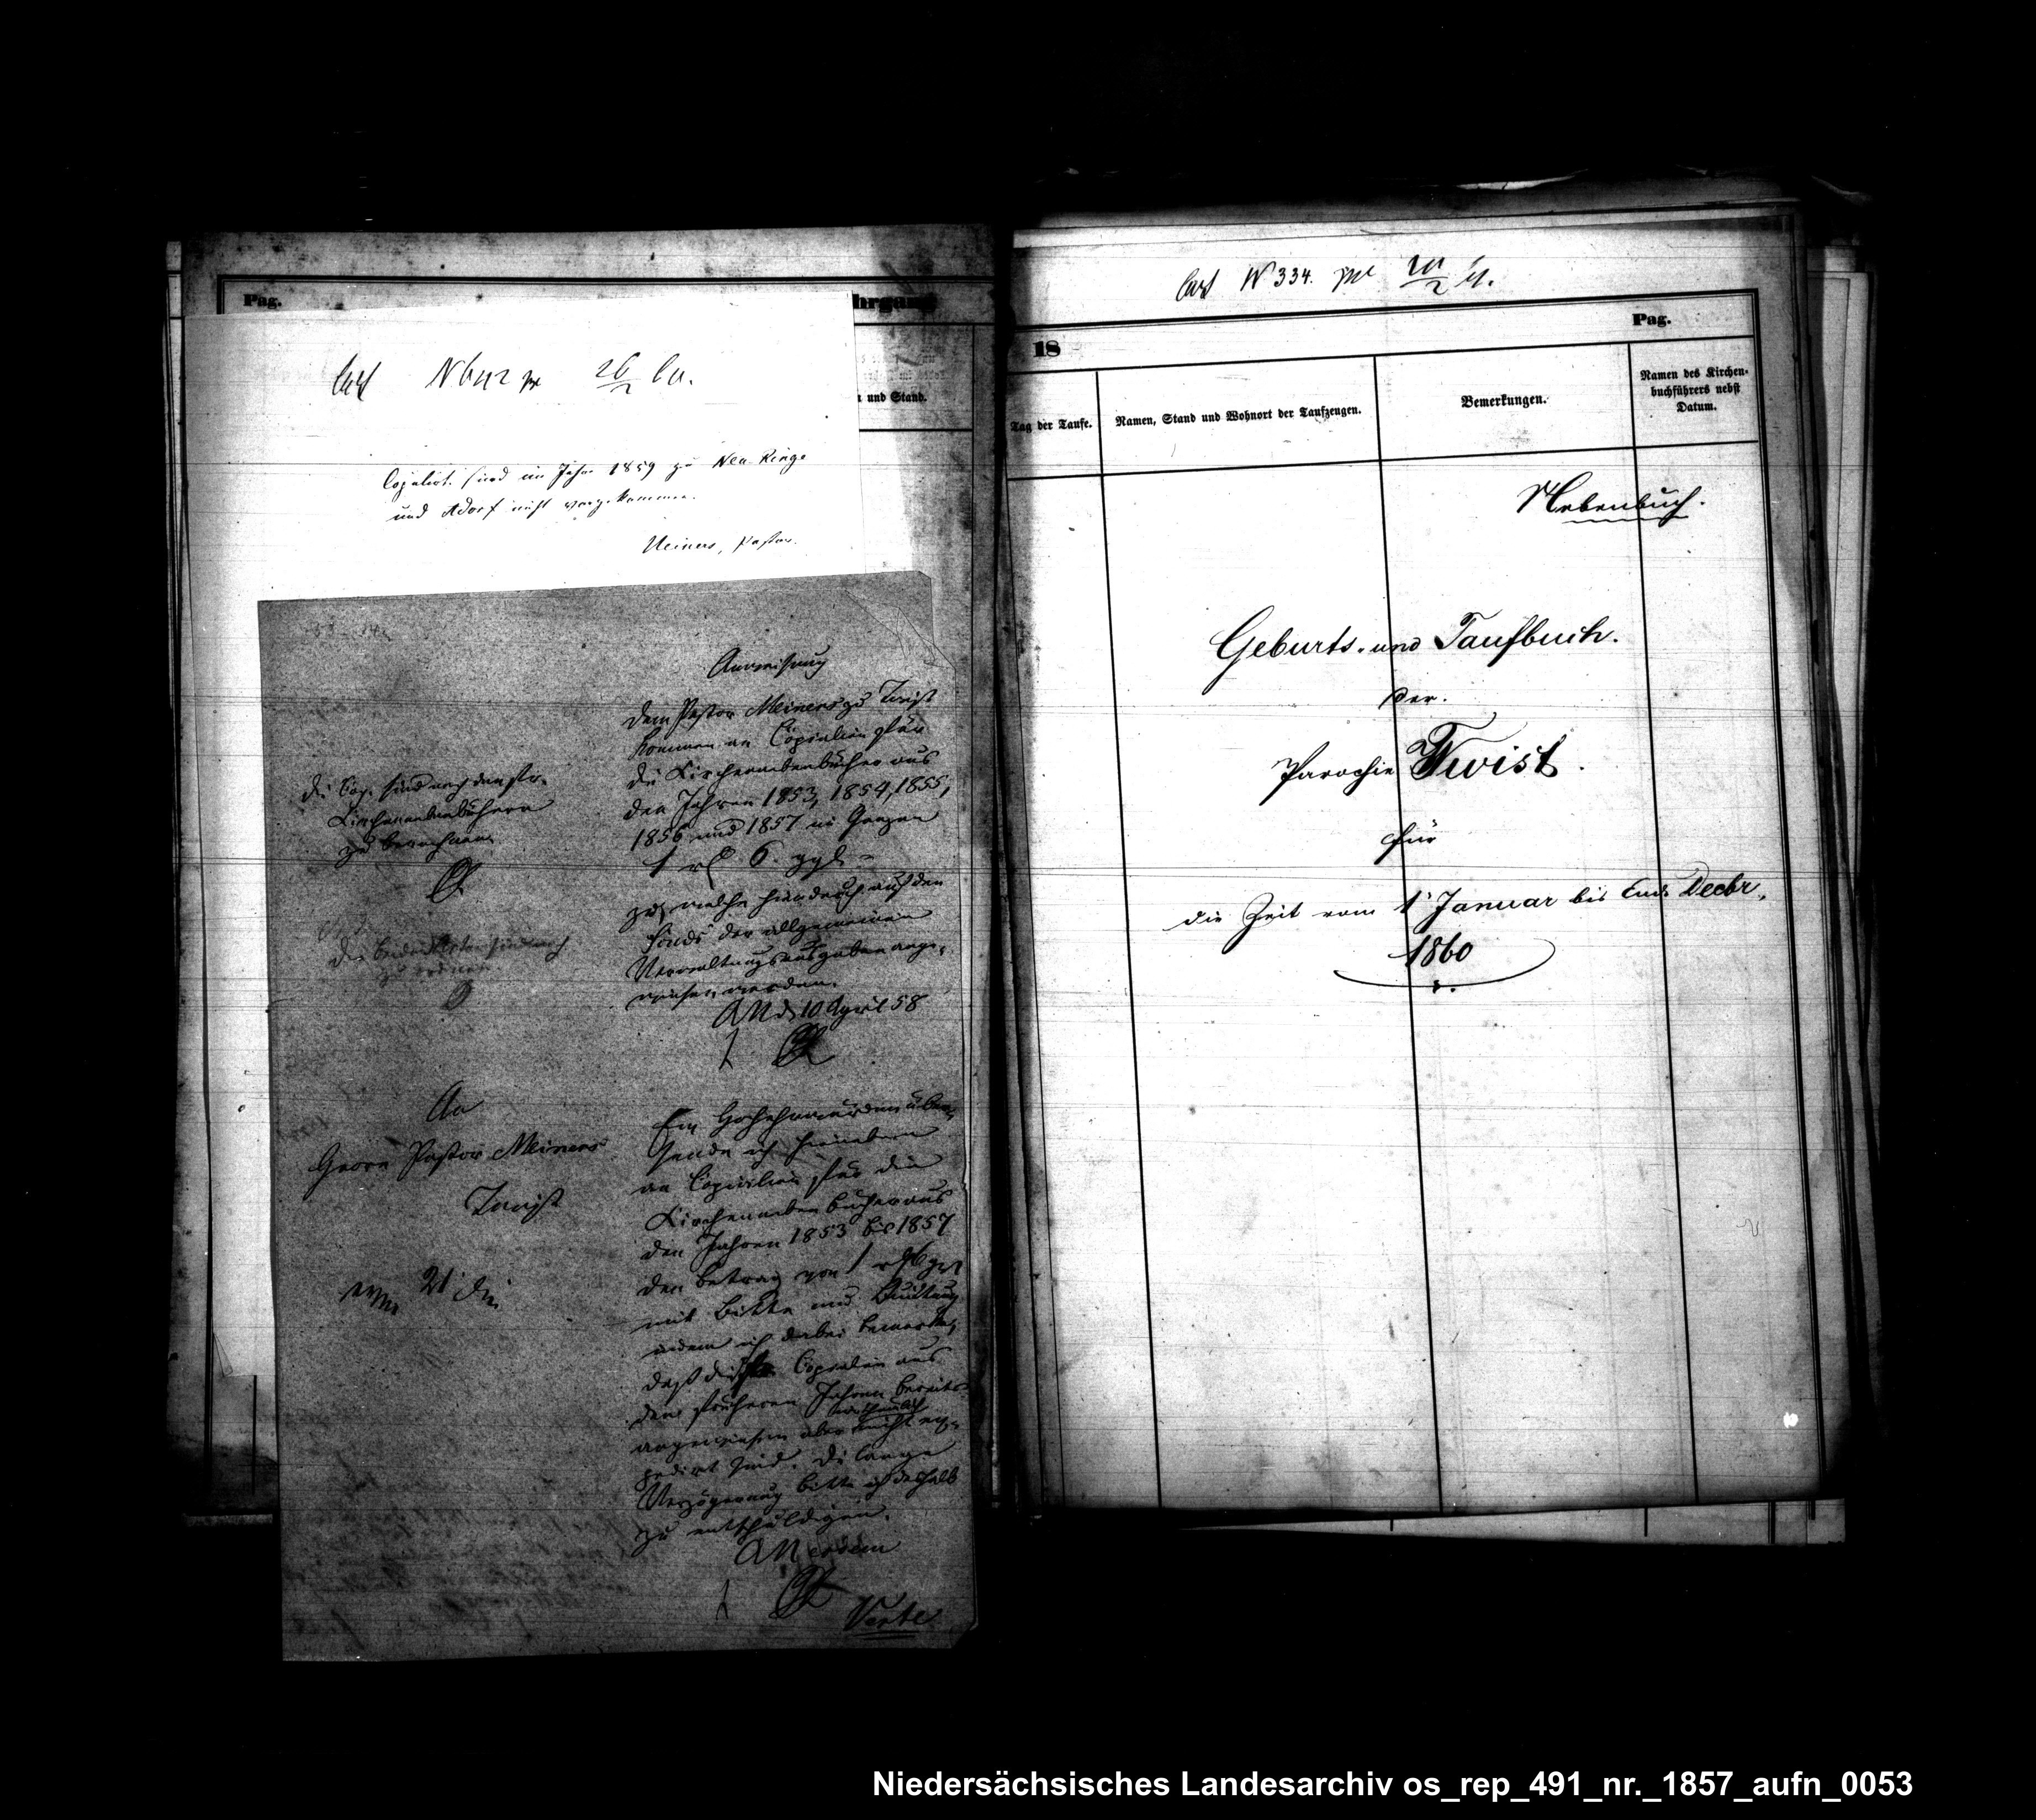 Pag.
hrgang
und Stand.
Copulirt sind im Jahre 1859 zu Neu-Ringe
und Adorf nicht vorgekommen.
Meiners, Pastor.
Anweisung
dem Pastor Meiners zu Twist
kommen an Copialien für
die Kirchennebenbücher aus
den Jahren 1853, 1854, 1855,
1856 und 1857 im Ganzen
1 rl 6 ggl
zu, welche hierdurch auf den
Fonds der allgemeinen
Verwaltungsausgaben ange-
wiesen werden.
AM d 10 April 58
die Cop. sind nach den
Kirchennebenbüchern
zu berechnen
An
Herrn Pastor Meiners
Twist
Ew. Hochehrwürden über-
sende ich hieneben
an Copialien für die
Kirchennebenbücher aus
den Jahren 1853 bis 1857
den Betrag von 1 6
mit Bitte um Quittung
indem ich dabei bemerke,
daß die Copialien aus
den früheren Jahren bereits
angewiesen aber nicht
sind. Die lange
Verzögerung bitte ich deshalb
zu entschuldigen.
AM eodem
Verte
N 334.
18
Pag.
Tag der Taufe.
Namen, Stand und Wohnort der Taufzeugen.
Bemerkungen.
Namen des Kirchen-
buchführers nebst
Datum.
Nebenbuch.
Geburts- und Taufbuch.
der.
Parochie Twist.
für
die Zeit vom 1 Januar bis Ende Decbr.
1860
Niedersächsisches Landesarchiv os_rep_491_nr._1857_aufn_0053